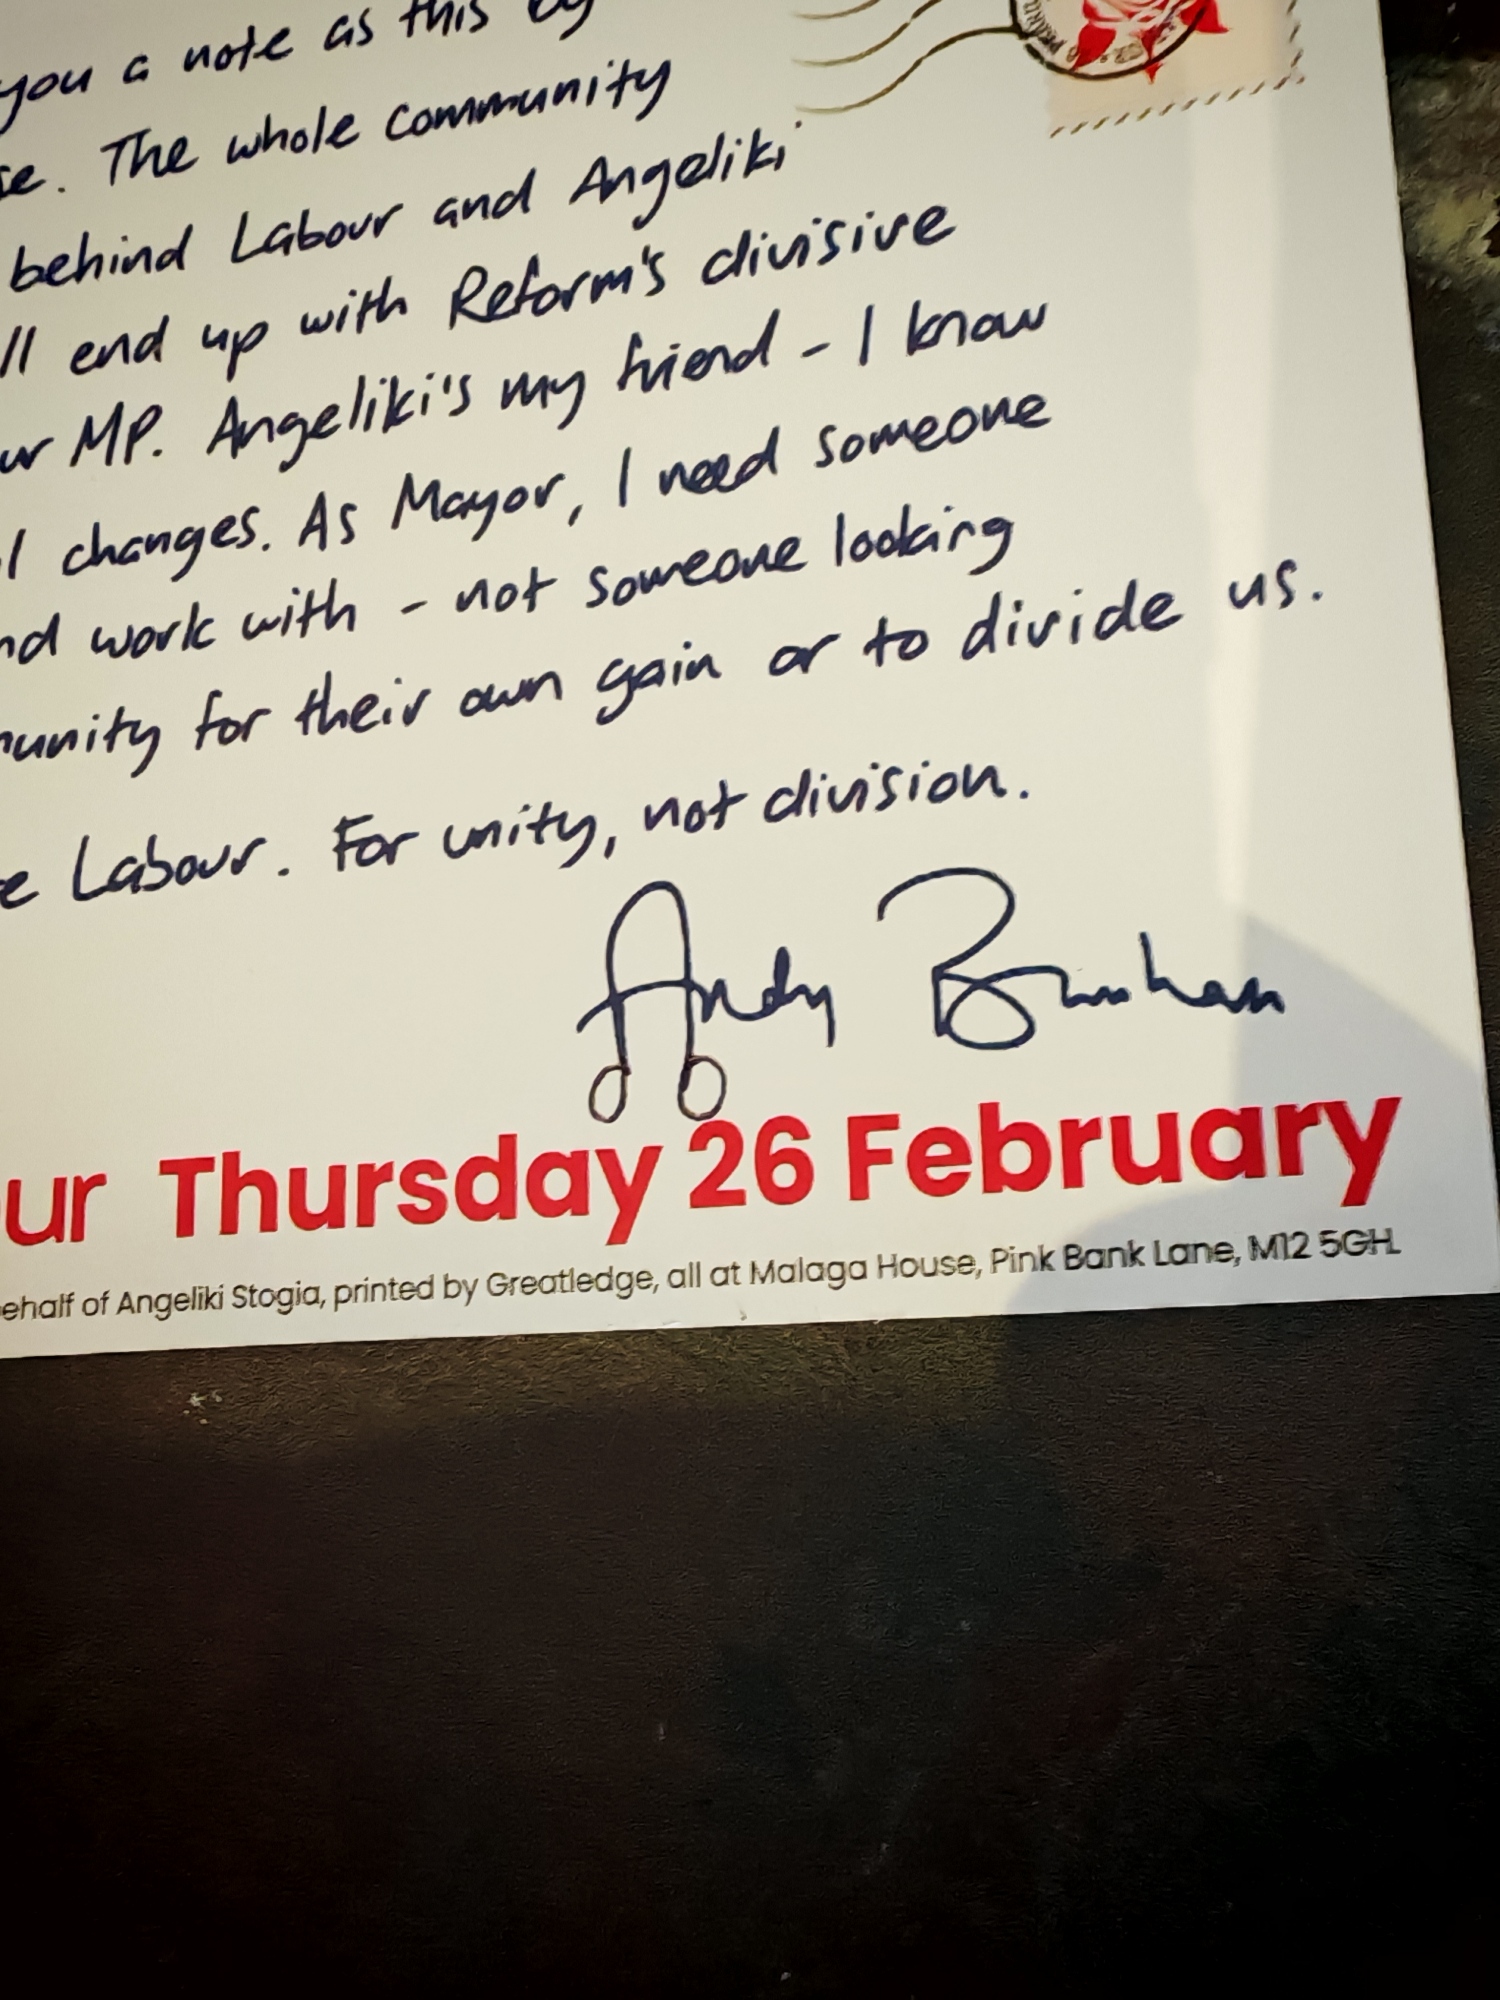 you a note as this
se. The whole community
behind Labour and Angeliki
'll end up with Reform's divisive
ur MP. Angeliki's my friend - I know
l changes. As Mayor, I need someone
nd work with - not someone looking
munity for their own gain or to divide us.
e Labour. For unity, not division.
Andy Burnham
our Thursday 26 February
ehalf of Angeliki Stogia, printed by Greatledge, all at Malaga House, Pink Bank Lane, M12 5GH.